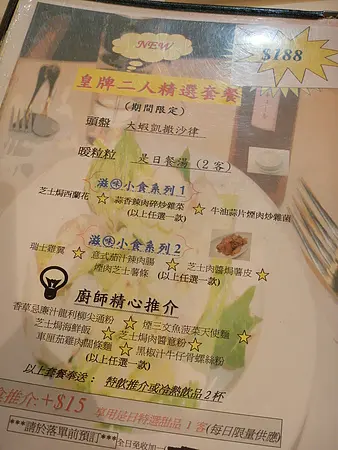 NEW
$188
皇牌二人精選套餐
(期間限定)
頭盤 大蝦凱撒沙律
暖粒粒 是日餐湯 (2 客)
滋味小食系列 1
芝士焗西蘭花 蒜香辣肉碎炒雜菜 牛油蒜片煙肉炒雜菌
(以上任選一款)
滋味小食系列 2
瑞士雞翼 意式茄汁辣肉腸 芝士肉醬焗薯皮
煙肉芝士薯條 (以上任選一款)
廚師精心推介
香草忌廉汁龍利柳尖通粉 煙三文魚菠菜天使麵
芝士焗海鮮飯 芝士焗肉醬薏粉
車厘茄雞肉闊條麵 黑椒汁牛仔骨螺絲粉
(以上任選一款)
以上套餐奉送: 特飲推介或冷熱飲品 2 杯
推介 +$15 享用是日特選甜品 1 客(每日限量供應)
***請於落單前預訂*** 全日免收加一